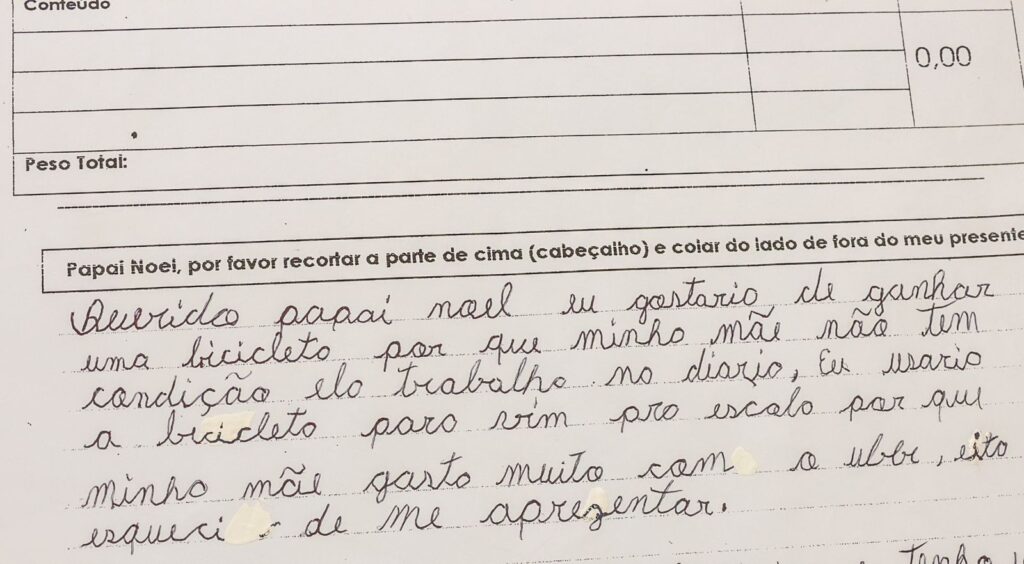 Conteúdo
0,00
Peso Total:
Papai Noel, por favor recortar a parte de cima (cabeçalho) e colar do lado de fora do meu presente
Querido papai noel eu gostario de ganhar
uma bicicleto por que minho mãe não tem
condição elo trabalho no diario, Eu usario
a bicicleto paro vim pro escolo por que
minho mãe gasto muito com o uber, eito
esqueci de me apresentar.
Tenho